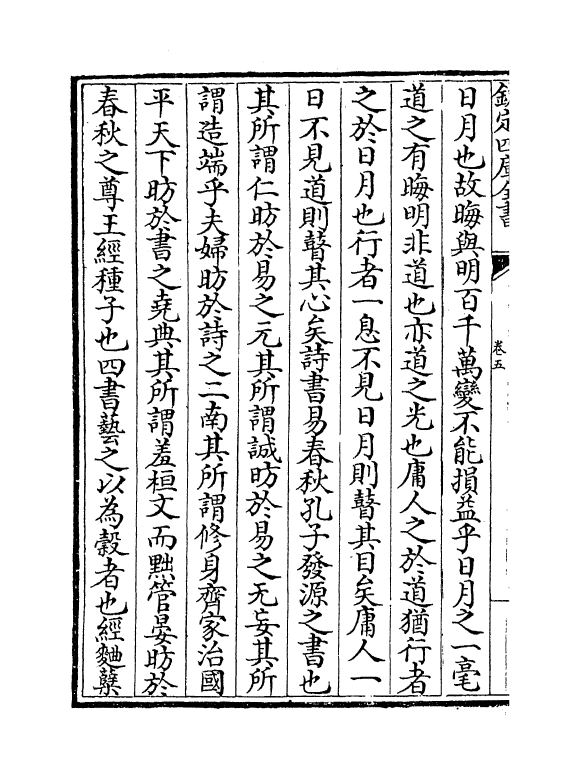 欽定四庫全書
卷五
日月也故晦與明百千萬變不能損益乎日月之一毫
道之有晦明非道也亦道之光也庸人之於道猶行者
之於日月也行者一息不見日月則瞽其目矣庸人一
日不見道則瞽其心矣詩書易春秋孔子發源之書也
其所謂仁昉於易之元其所謂誠昉於易之无妄其所
謂造端乎夫婦昉於詩之二南其所謂修身齊家治國
平天下昉於書之堯典其所謂羞桓文而黜管晏昉於
春秋之尊王經種子也四書藝之以為穀者也經麯蘖